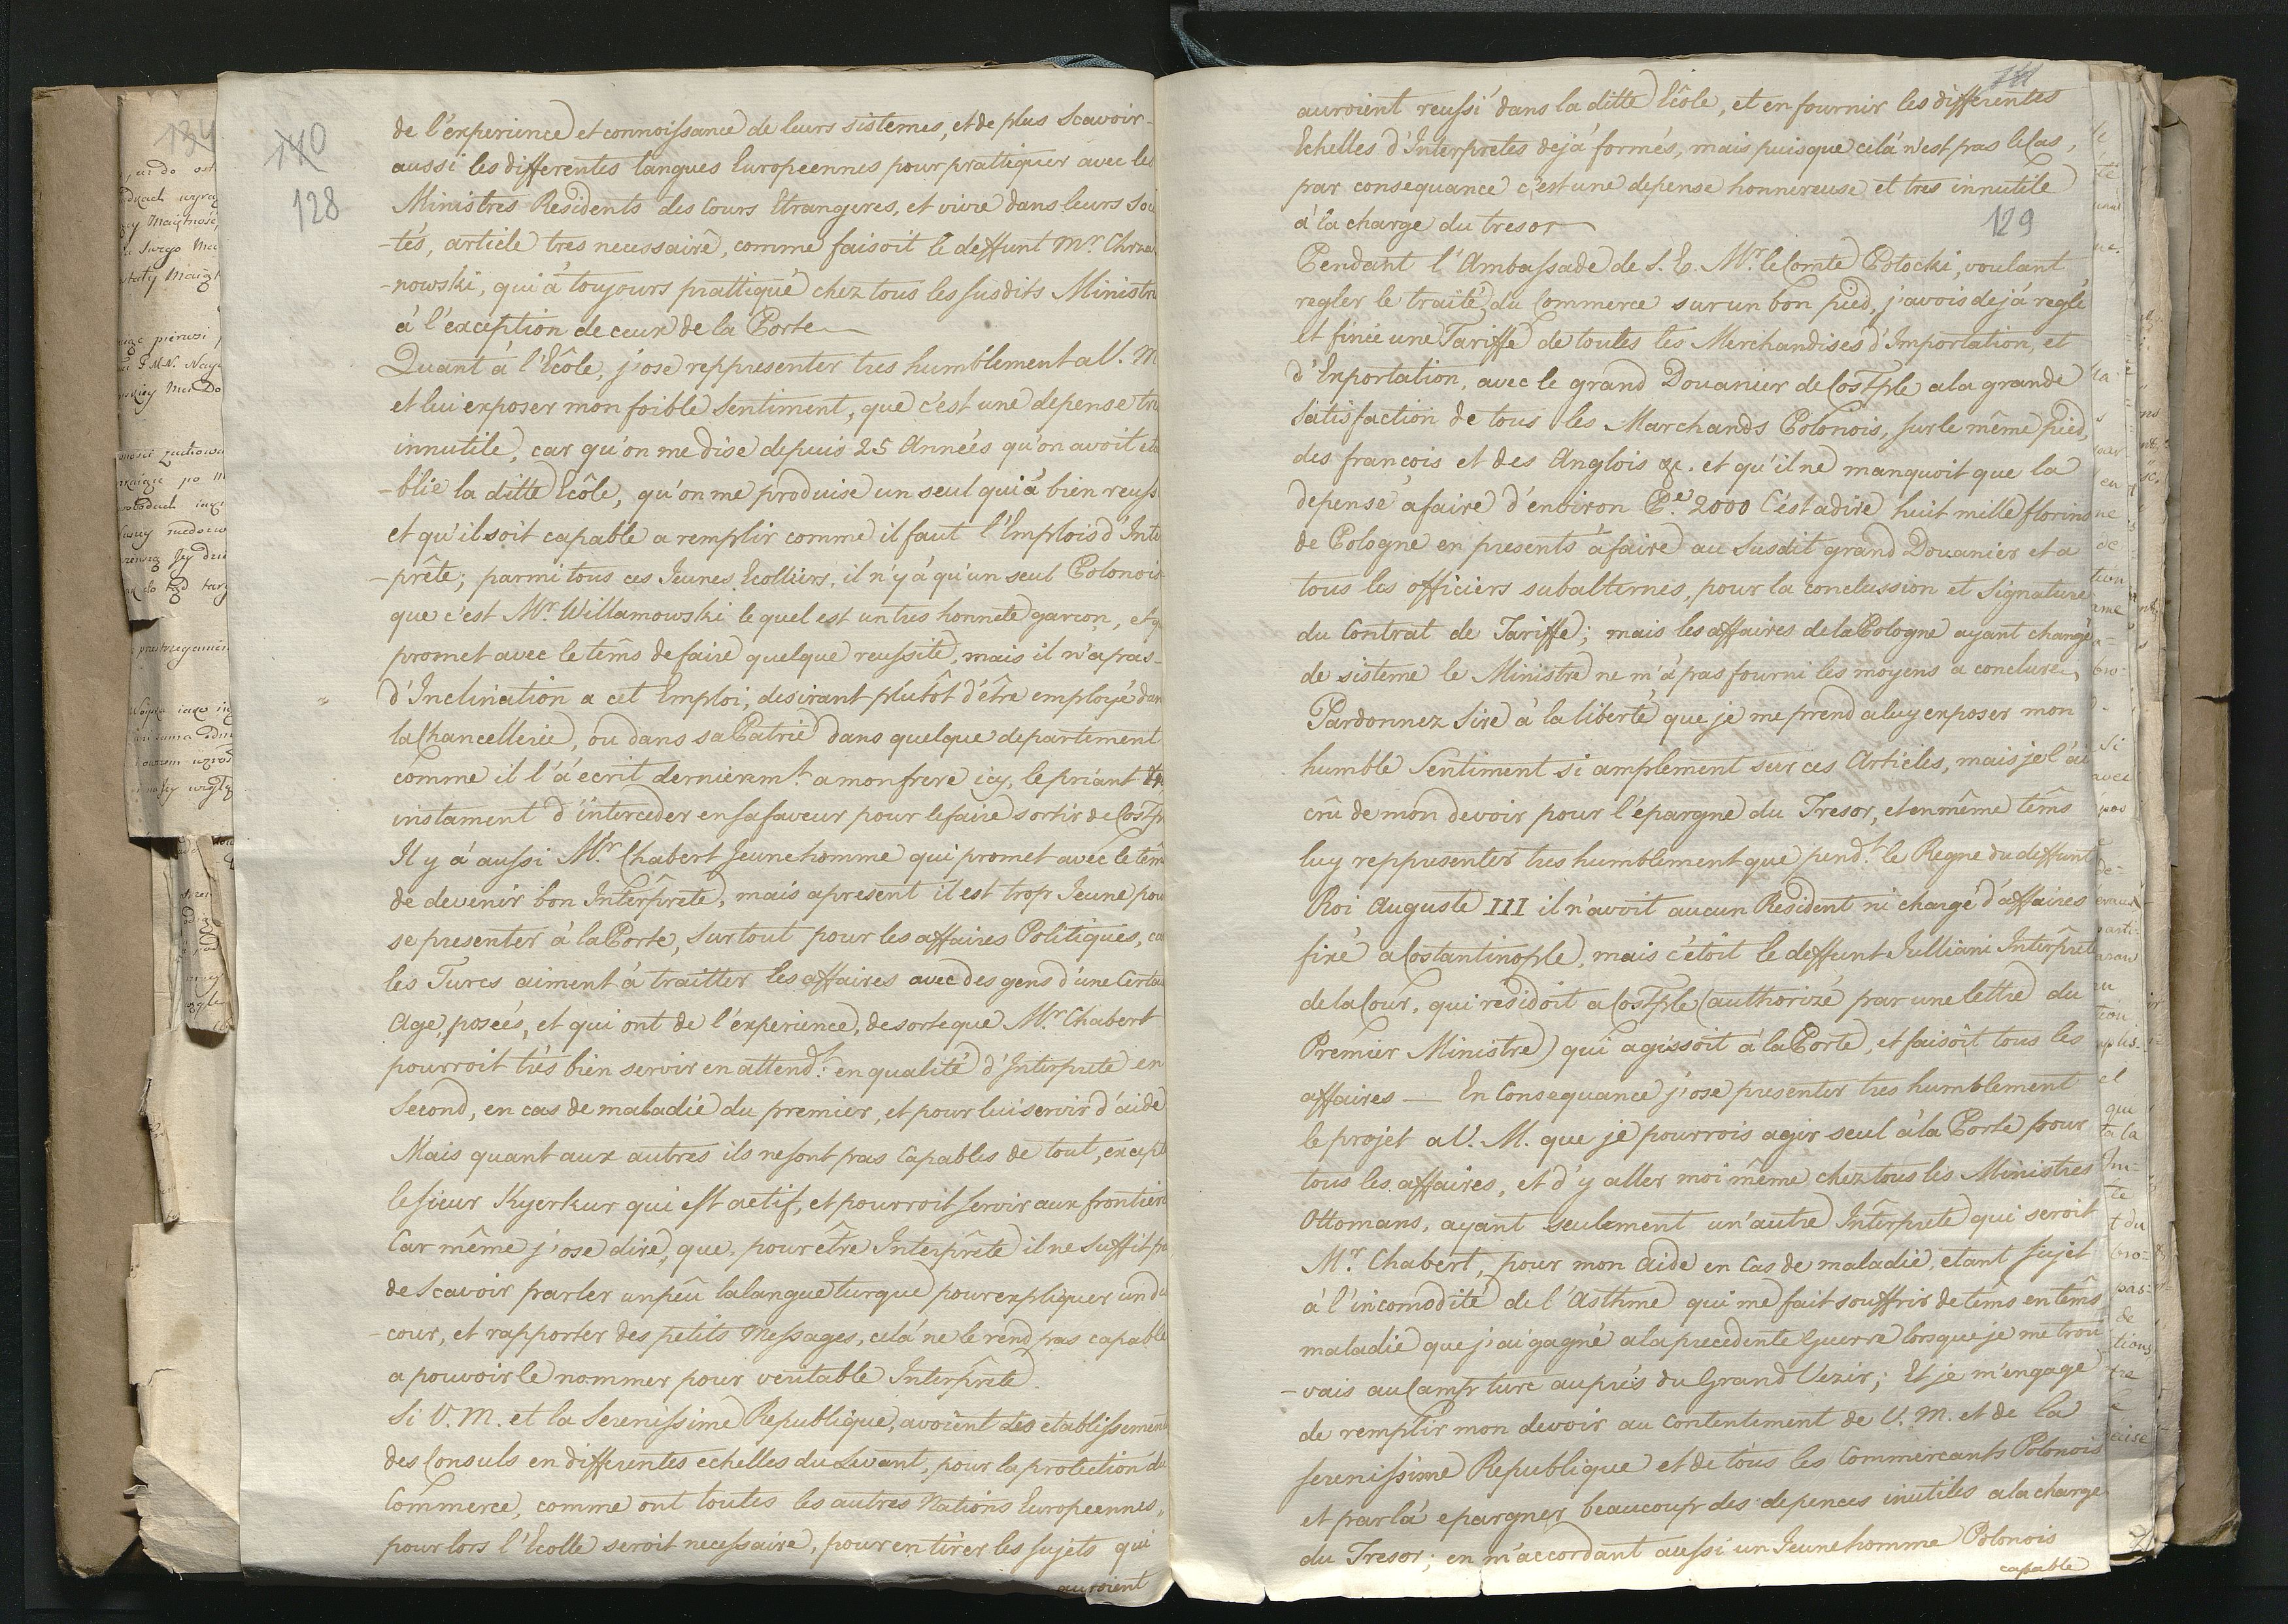 140
128
de l'experience et connoissance de leurs sistemes, et de plus scavoir-
aussi les differentes langues Europeennes pour prattiquer avec les
Ministres Residents des Cours Etrangeres, et vivre dans leurs soi
-tés, article tres necessaire, comme faisoit le deffunt Mr. Chrza
-nowski, qui à toujours prattiqué chez tous les susdits Ministre
à l'exception de ceux de la Porte
Quant à l'Ecôle, j'ose reppresenter tres humblement a V. M
et lui exposer mon foible sentiment, que c'est une depense tre
innutile, car qu'on me dise depuis 25 Années qu'on avoit eta
-blie la ditte Ecôle, qu'on me produise un seul qui à bien reuss
et qu'il soit capable a remplir comme il faut l'Emplois d'Inte
-prête; parmi tous ces Jeunes Ecolliers, il n'y à qu'un seul Polonois
que c'est Mr. Willamowski le quel est un tres honnete garçon, et q
promet avec le têms de faire quelque reussite, mais il n'a pas-
d'Inclination a cet Emploi, desirant plutôt d'être employé dan
la Chancellerie, ou dans sa Patrie dans quelque departement
comme il l'à ecrit dernieremt. a mon frere icy, le priant
instament d'interceder en sa faveur pour le faire sortir de Costp
Il y à aussi Mr. Chabert Jeune homme qui promet avec le têm
de devenir bon Interprête, mais apresent il est trop Jeune pou
se presenter à la Porte, surtout pour les affaires Politiques, ca
les Turcs aiment à traitter les affaires avec des gens d'une Certai
Age, posées, et qui ont de l'experience, de sorte que Mr. Chabert
pourroit très bien servir en attendt. en qualité d'Interprete en
Second, en cas de maladie du premier, et pour lui servir d'aide
Mais quant aux autres ils ne sont pas Capables de tout, except
le sieur Kyerkur qui est actif, et pourroit servir aux frontiere
Car même j'ose dire, que, pour être Interprête il ne suffit pa
de scavoir parler un peû la langue turque pour expliquer un di
-cour, et rapporter des petits Messages, celà ne le rend pas capable
a pouvoir le nommer pour veritable Interprête.
Si V. M. et la Serenissime Republique, avoient des etablissemen
des Consuls en differentes echelles du Levant, pour la protection du
Commerce, comme ont toutes les autres Nations Europeennes,
pour lors l'Ecolle seroit necessaire, pour en tirer les sujets qui
auroient
141
129
auroient reussi dans la ditte Ecôle, et en fournir les differentes
Echelles d'Interpretes dejà formés, mais puisque celà n'est pas le Cas,
par consequance c'est une depense honnereuse et tres innutile
à la charge du tresor
Pendant l'Ambassade de S. E. Mr. le Comte Potocki, voulant
regler le traité du Commerce sur un bon pied, j'avois dejà reglé
et finie une Tariffe de toutes les Merchandises d'Importation, et
d'Exportation, avec le grand Douanier de Costple a la grande
satisfaction de tous les Marchands Polonois, sur le même pied,
des francois et des Anglois &c. et qu'il ne manquoit que la
depense à faire d'environ Pe. 2000 C'est a dire huit mille florins
de Pologne en presents à faire au susdit grand Douanier et a
tous les officiers subalternes, pour la conclussion et Signature
du Contrat de Tariffe; mais les affaires de la Pologne ayant changé
de sisteme le Ministre ne m'à pas fourni les moyens a conclure,
Pardonnez Sire à la liberté que je me prend a luy exposer mon
humble Sentiment si amplement sur ces Articles, mais je l'ài
crû de mon devoir pour l'épargne du Tresor, et en même têms
luy reppresenter tres humblement que pendt. le Regne du deffunt
Roi Auguste III il n'avoit aucun Resident ni chargé d'affaires
fixé a Costantinople, mais c'étoit le deffunt Julliani Interprete
de la Cour, qui residoit a Costple (authorizé par une lettre du
Premier Ministre) qui agissoit à la Porte, et faisoit tous les
affaires — En Consequance j'ose presenter tres humblement
le projet a V. M. que je pourrois agir seul à la Porte pour
tous les affaires, et d'y aller moi même chez tous les Ministres
Ottomans, ayant seulement un'autre Intêrprete qui seroit
Mr. Chabert, pour mon aide en Cas de maladie, etant sujet
à l'incomodité de l'Asthme qui me fait souffrir de tems en têms
maladie que j'ai gagné a la precedente Guerre lorsque je me trou
-vais au Camp turc auprès du Grand Vezir; Et je m'engage
de remplir mon devoir au Contentement de V. M. et de la
serenissime Republique et de tous les Commercants Polonois
et par là epargner beaucoup des depences inutiles a la charge
du Tresor; en m'accordant aussi un Jeune homme Polonois
capable